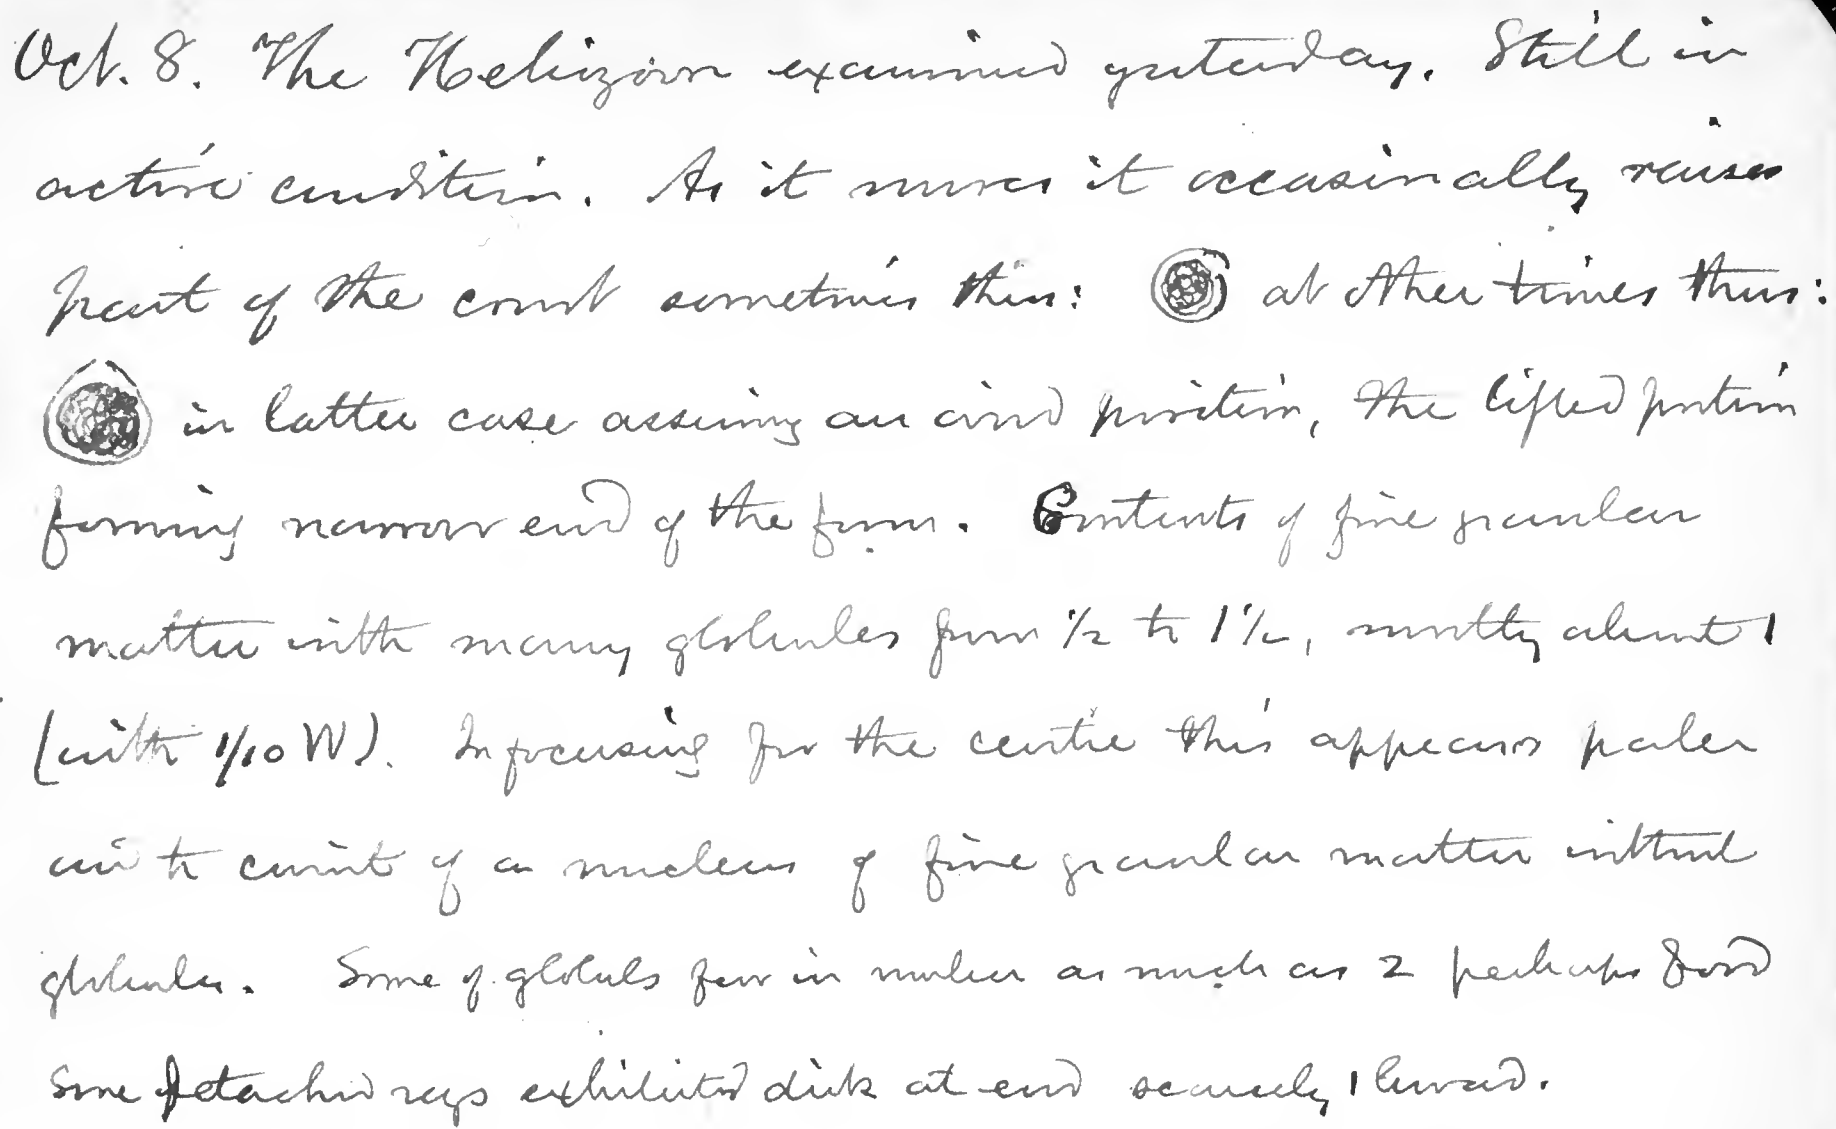 Oct. 8. The Heliozoan examined yesterday. Still in
active condition. As it moves it occasionally raises
part of the coat sometimes thus: at other times thus:
in latter case assuming an ovoid position, the lifted portion
forming narrow end of the form. Contents of fine granular
matter with many globules from ½ to 1½, mostly about 1
(with 1/10 W). In focusing for the centre this appears paler
of a nucleus of fine granular matter without
globules. Some of globuls few in number as much as 2 perhaps food
Some detached rays exhibited disk at end scarcely 1 broad.